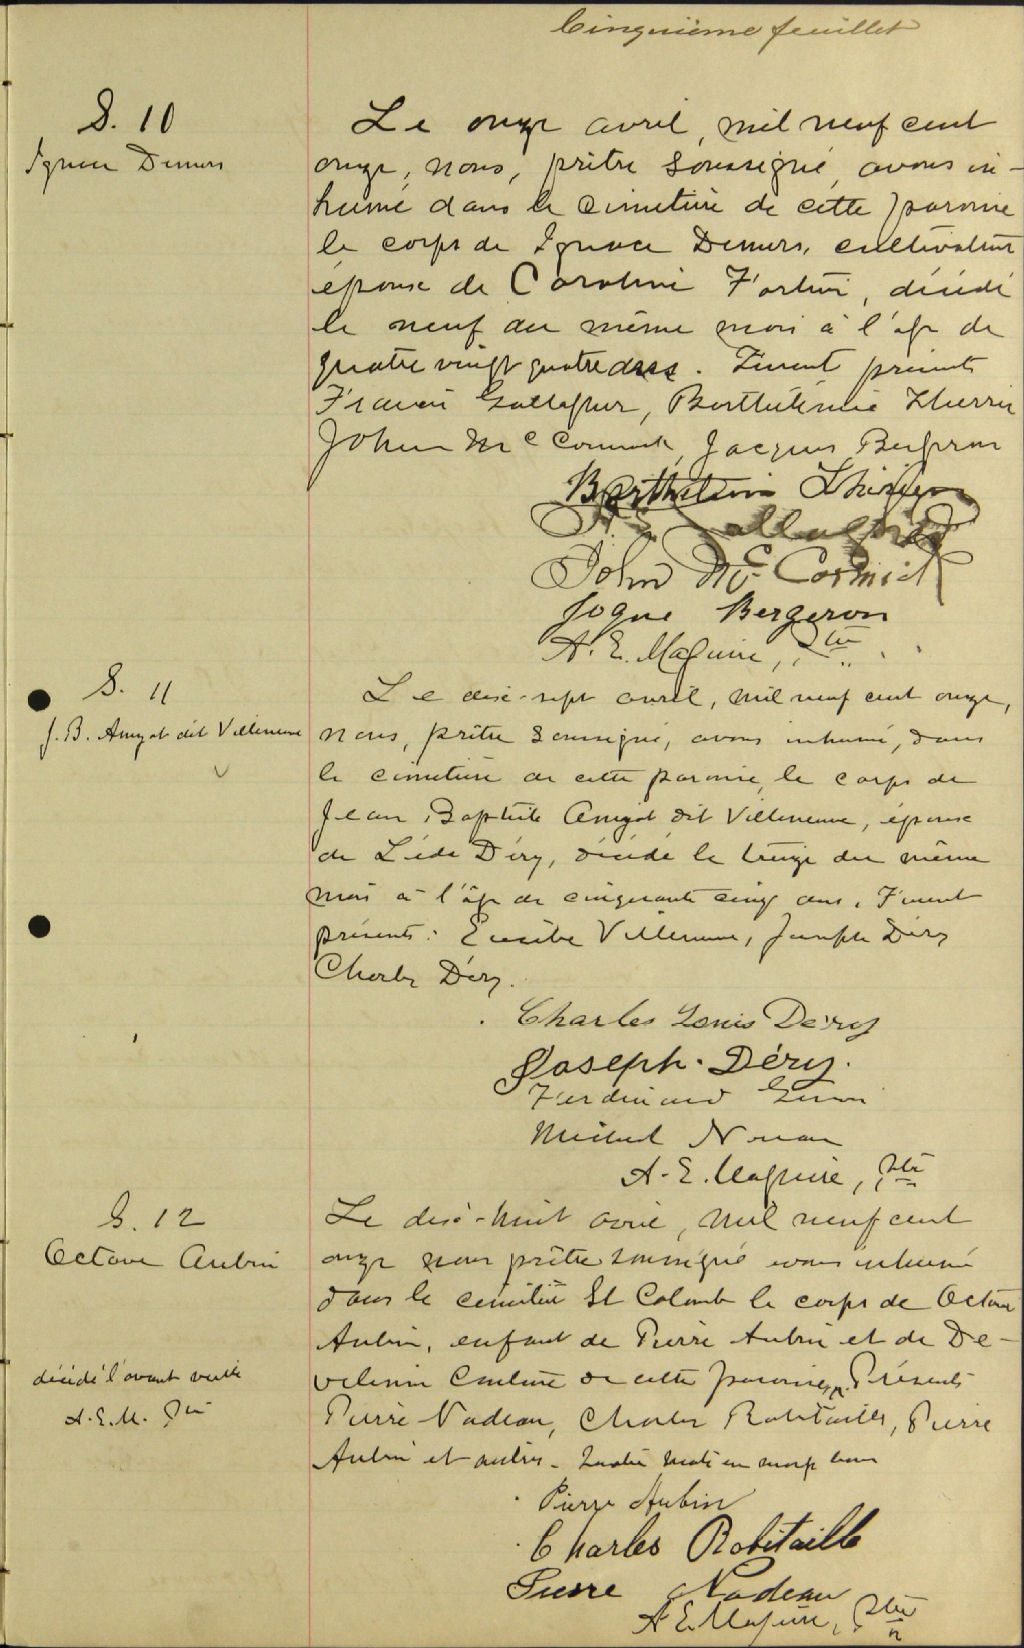 Cinquième feuillet
S. 10
Ignace Demers
Le onze avril, mil neuf cent
onze, nous, prêtre soussigné, avons in-
humé dans le cimetière de cette paroisse
le corps de Ignace Demers, cultivateur
époux de Caroline Fortier, décédé
le neuf du même mois à l'âge de
quatre vingt quatre ans. Furent présents
Francis Gallagher, Barthélémie Therrien
John McCormick, Jacques Bergeron
Barthelemi Therrien
Gallagher
John McCormick
Joque Bergeron
A. E. Maguire, Ptre
S. 11
J. B. Amyot dit Villeneuve
Le dix-sept avril, mil neuf cent onze,
nous, prêtre soussigné, avons inhumé, dans
le cimetière de cette paroisse, le corps de
Jean Baptiste Amyot dit Villeneuve, époux
de Léda Déry, décédé le treize du même
mois à l'âge de cinquante cinq ans. Furent
présents: Eusèbe Villeneuve, Joseph Déry
Charles Déry.
Charles Louis Déry
Joseph Déry.
Ferdinand
Michel
A. E. Maguire, Ptre
S. 12
Octave Aubin
Le dix-huit avril, mil neuf cent
onze nous prêtre soussigné avons inhumé
dans le cimetière St Colomb le corps de Octave
Aubin, enfant de Pierre Aubin et de De-
velina Couture de cette paroisse. Présents
décédé l'avant veille
A. E. M. Ptre
Pierre Nadeau, Charles Robitaille, Pierre
Aubin et autres. Quatre mots en marge bons
Pierre Aubin
Charles Robitaille
Pierre Nadeau
A. E. Maguire, Ptre